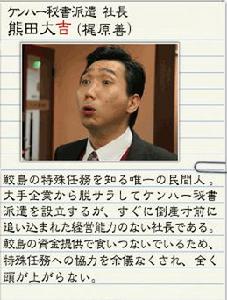 ケンハー秘書派遣 社長
熊田大吉 (梶原善)
鮫島の特殊任務を知る唯一の民間人。
大手企業から脱サラしてケンハー秘書
派遣を設立するが、すぐに倒産寸前に
追い込まれた経営能力のない社長である。
鮫島の資金提供で食いつないでいるため、
特殊任務への協力を余儀なくされ、全く
頭が上がらない。